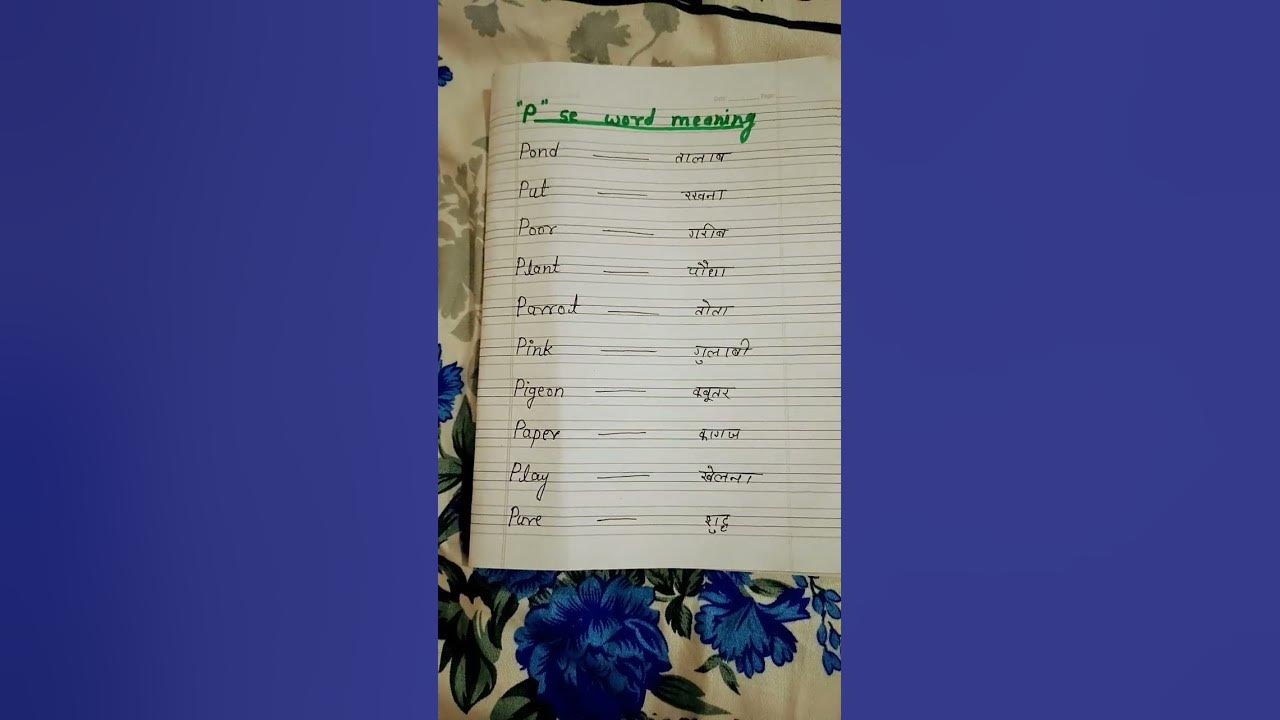 "P" se word meaning
Pond — तालाब
Put — रखना
Poor — गरीब
Plant — पौधा
Parrot — तोता
Pink — गुलाबी
Pigeon — कबूतर
Paper — कागज
Play — खेलना
Pure — शुद्ध